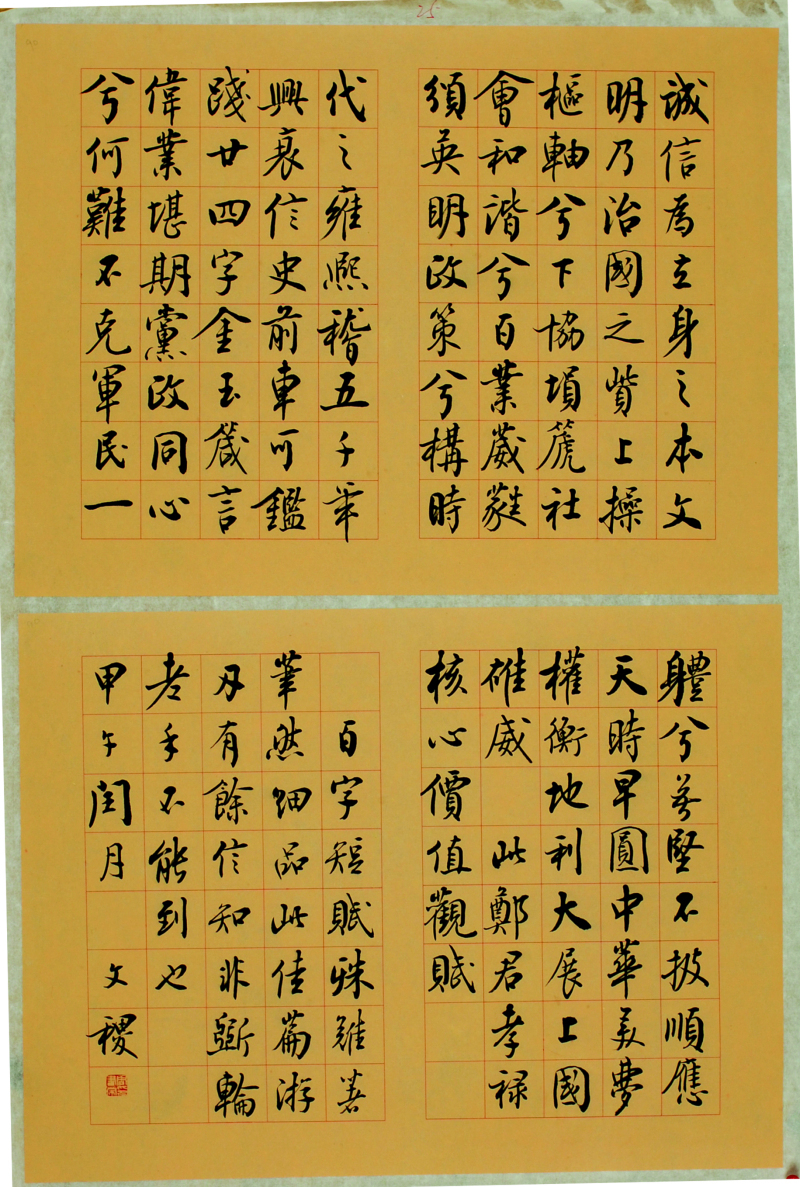 25
誠信為立身之本文
明乃治國之貲上操
樞軸兮下協塤篪社
會和諧兮百業葳蕤
須英明政策兮構時
代之雍熙稽五千年
興衰信史前車可鑑
踐廿四字金玉箴言
偉業堪期黨政同心
兮何難不克軍民一
體兮無堅不披順應
天時早圓中華美夢
權衡地利大展上國
雄威 此鄭君孝祿
核心價值觀賦
百字短賦殊難著
筆然細品此佳篇游
刃有餘信知非斲輪
老手不能到也
甲午閏月 文稷